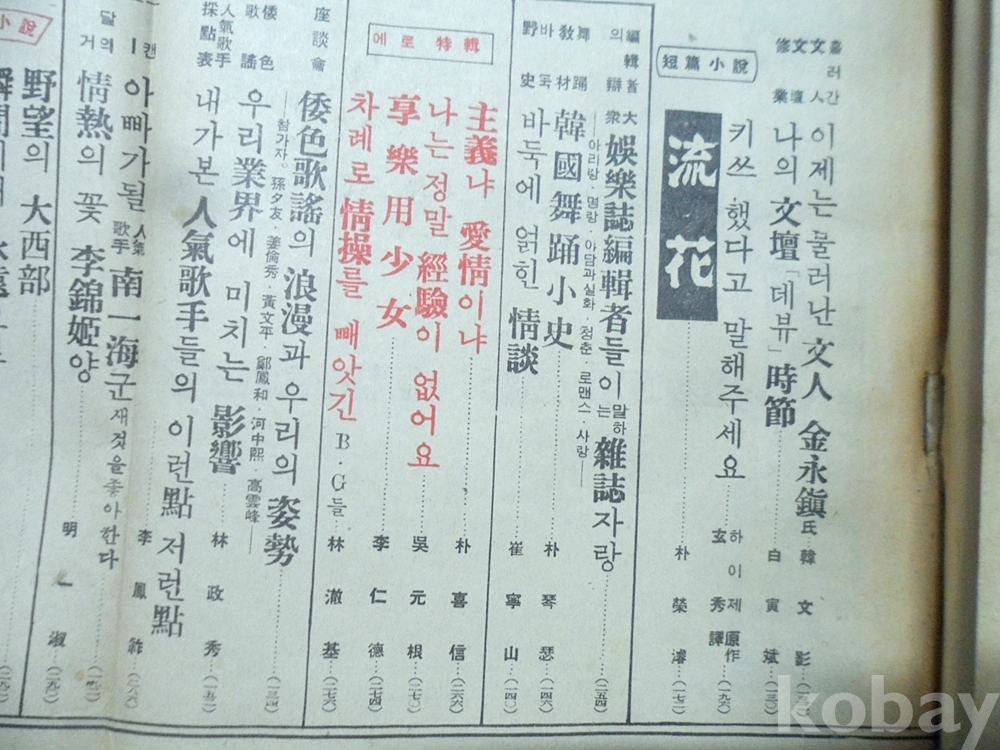 흘러간 文人 이제는 물러난 文人 金永鎭氏 韓文影
文壇修業 나의 文壇「데뷰」時節 白寅斌 (一三〇)
키쓰했다고 말해주세요 하이제 原作 玄秀 譯 (一九六)
短篇小說 流花 朴榮濬 (一七二)
編輯者의辯 大衆 娛樂誌編輯者들이 말하는 雜誌자랑 (一五四)
──아리랑·명랑·아담과실화·청춘·로맨스·사랑──
舞踊敎材 韓國舞踊小史 朴琴瑟 (一四六)
바둑野史 바둑에 얽힌 情談 崔寧山 (一四〇)
에로 特輯
主義냐 愛情이냐 朴喜信 (二六六)
나는정말 經驗이 없어요 吳元根 (二七〇)
享樂用少女 李仁德 (二七四)
차례로 情操를 빼앗긴 B·G들 林澈基 (二七六)
座談會 倭色歌謠의 浪漫과 우리의 姿勢 (一三四)
──참가자。孫夕友·姜倫秀·黃文平·鄭鳳和·河中熙·高雲峰──
倭色歌謠 우리業界에 미치는 影響 林政秀 (一五二)
人氣歌手採點表 내가본 人氣歌手들의 이런點 저런點 李鳳祚
아빠가될 人氣歌手 南一海군 (二六六)
情熱의 꽃 李錦姬양 새것을좋아한다
野望의 大西部 明一淑 (二九二)
小說